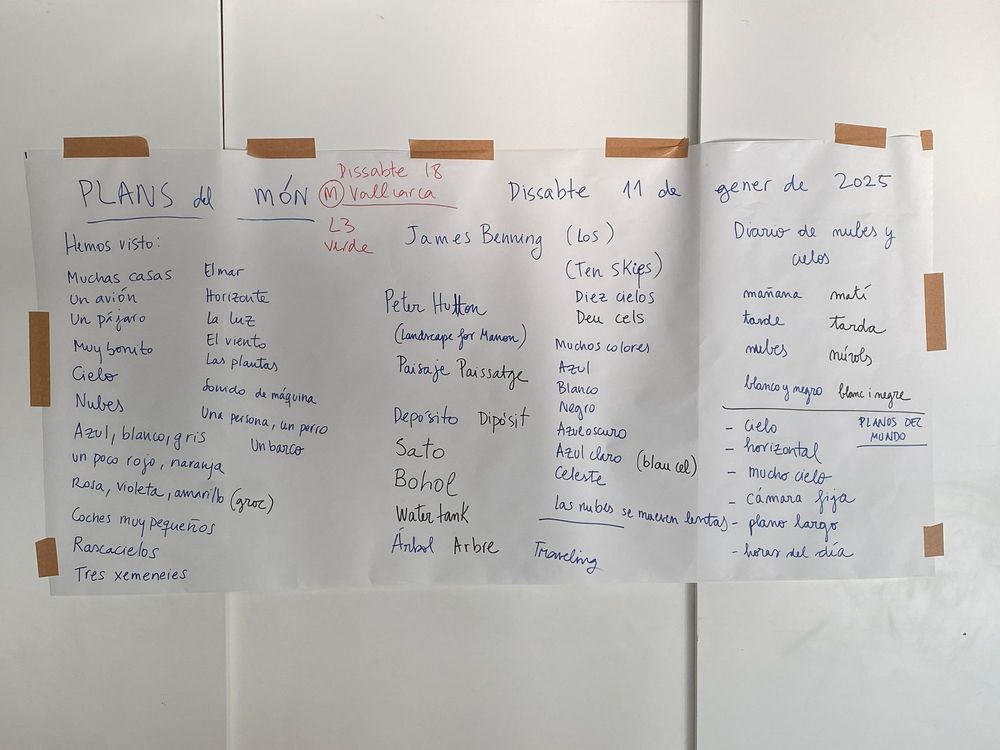 PLANS del MÓN
Dissabte 18
M Vallcarca
L3
verde
Dissabte 11 de gener de 2025
Hemos visto:
Muchas casas
Un avión
Un pájaro
Muy bonito
Cielo
Nubes
Azul, blanco, gris
un poco rojo, naranja
Rosa, violeta, amarillo (groc)
Coches muy pequeños
Rascacielos
Tres xemeneies
El mar
Horizonte
La luz
El viento
Las plantas
Sonido de máquina
Una persona, un perro
Un barco
James Benning (Los)
(Ten Skies)
Diez cielos
Deu cels
Peter Hutton
(Landscape for Manon)
Paisaje Paissatge
Depósito Dipòsit
Sato
Bohol
Water tank
Árbol Arbre
Muchos colores
Azul
Blanco
Negro
Azul oscuro
Azul claro (blau cel)
Celeste
Las nubes se mueven lentas
Traveling
Diario de nubes y
cielos
mañana matí
tarde tarda
nubes núvols
blanco y negro blanc i negre
PLANOS DEL
MUNDO
- cielo
- horizontal
- mucho cielo
- cámara fija
- plano largo
- horas del día